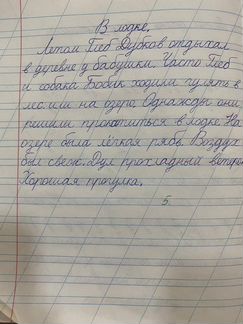 В лодке.
Летом Глеб Дубков отдыхал
в деревне у бабушки. Часто Глеб
и собака Бобик ходили гулять в
лес или на озеро. Однажды они
решили прокатиться в лодке. На
озере была лёгкая рябь. Воздух
был свеж. Дул прохладный ветерок.
Хорошая прогулка.
5